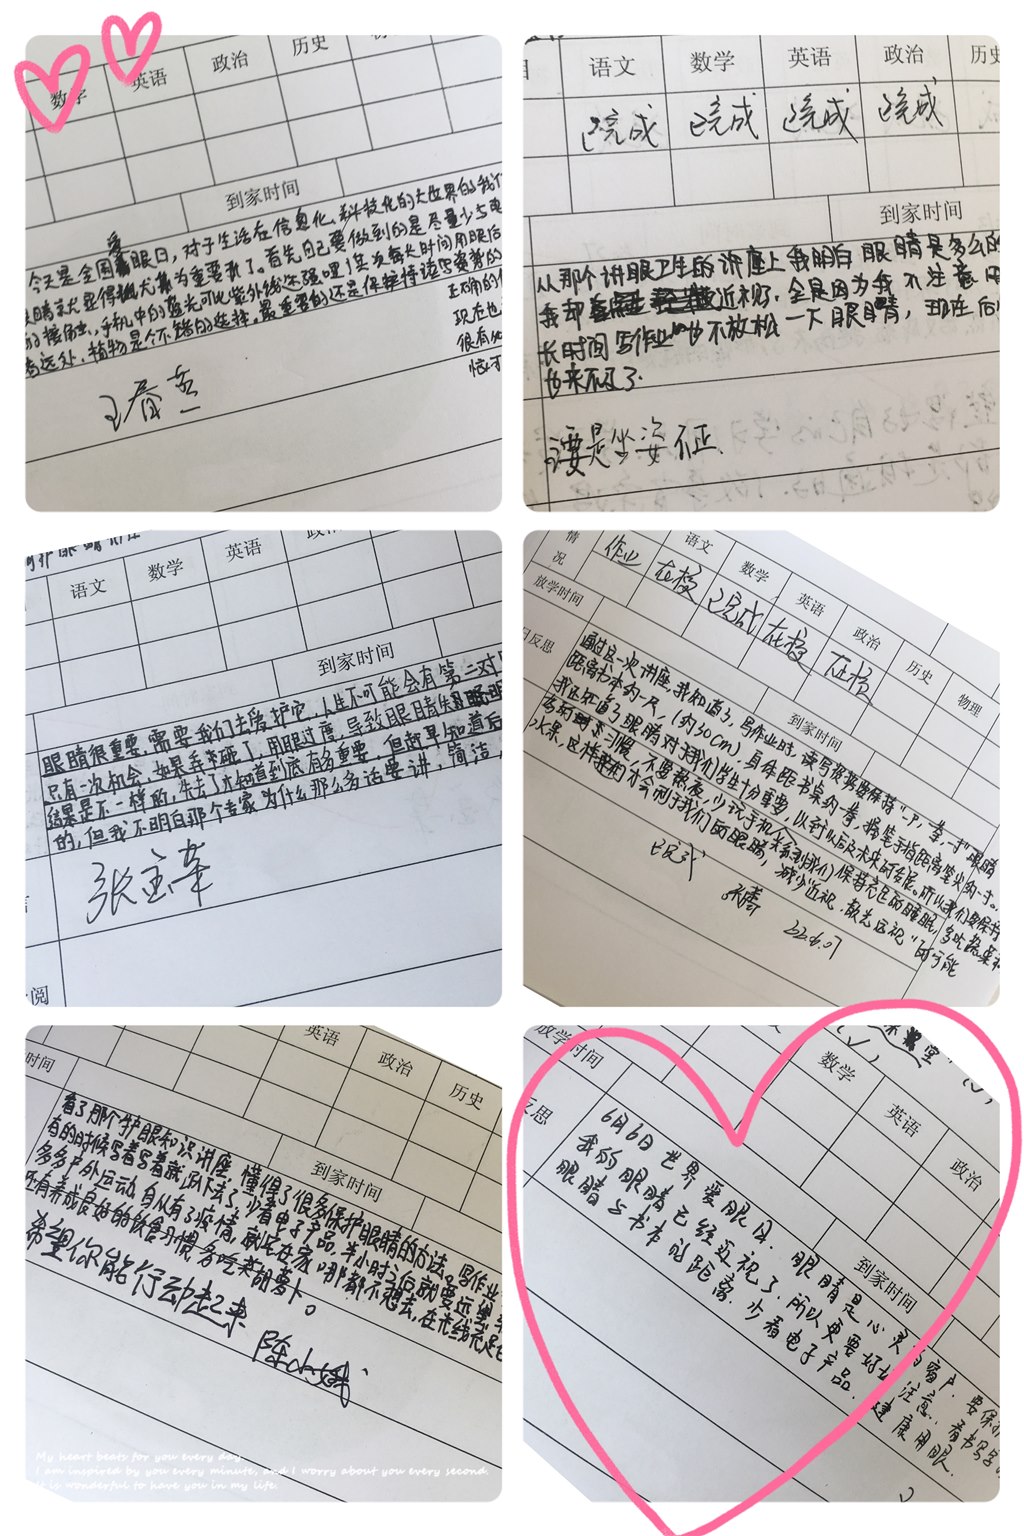 数学 英语 政治 历史
到家时间
今天是全国爱眼日，对于生活在信息化、科技化的大世界的我们
眼睛就显得尤为重要了。首先自己要做到的是尽量少与电
的接触，手机中的蓝光可比紫外线还强哩！其次每天时间用眼后
看远处，植物是个不错的选择。最重要的还是保持读写姿势的
正确的
现在也
很有
语文 数学 英语 政治 历史
已完成 已完成 已完成 已完成
到家时间
从那个讲眼卫生的讲座上我明白眼睛是多么的
我却近视了，全是因为我不注意用
长时间写作业也不放松一下眼睛，现在后
也来不及了.
主要是坐姿不正.
语文 数学 英语 政治
到家时间
眼睛很重要，需要我们去爱护它，人生不可能会有第二对
只有一次机会，如果弄来碰了，用眼过度，导致眼睛失明
结果是不一样的，失去了才知道到底有多重要，但趁早知道后
的，但我不明白那个专家为什么那么多话要讲；简洁
阅
情况 作业 语文 数学 英语 政治 历史 物理
在校 已完成 在校 在校
放学时间
到家时间
日反思
通过这一次讲座，我知道了，写作业时，读写要保持“一尺，一拳，一寸”眼睛
距离书本约一尺，(约30cm)，身体距书桌约一拳，握笔手指距离笔尖约一寸。
我还知道了眼睛对于我们学生十分重要，以至于以后及未来的发展。所以我们要保持
习惯，不要熬夜，少玩手机，保持充足的睡眠，多吃蔬菜和
水果，这样才会利于我们的眼睛，减少近视，散光远视"的可能
已完成
22.6.07
英语 政治 历史
时间
到家时间
看了那个护眼知识讲座，懂得了很多保护眼睛的方法。写作业
有的时候写着写着就趴下去了，少看电子产品，半小时之后就要远望
多多户外运动，自从有了疫情，就宅在家，哪都不想去，在光线充足
还有养成良好的饮食习惯，多吃菜胡萝卜。
希望你能行动起来 陈小娥
My heart beats for you every day.
I am inspired by you every minute, and I worry about you every second.
It is wonderful to have you in my life.
放学时间
数学 英语 政治
到家时间
反思
6月6日世界爱眼日. 眼睛是心灵的窗户. 要保护
我的眼睛已经近视了. 所以更要好好注意. 看书写字
眼睛与书本的距离. 少看电子产品. 健康用眼.